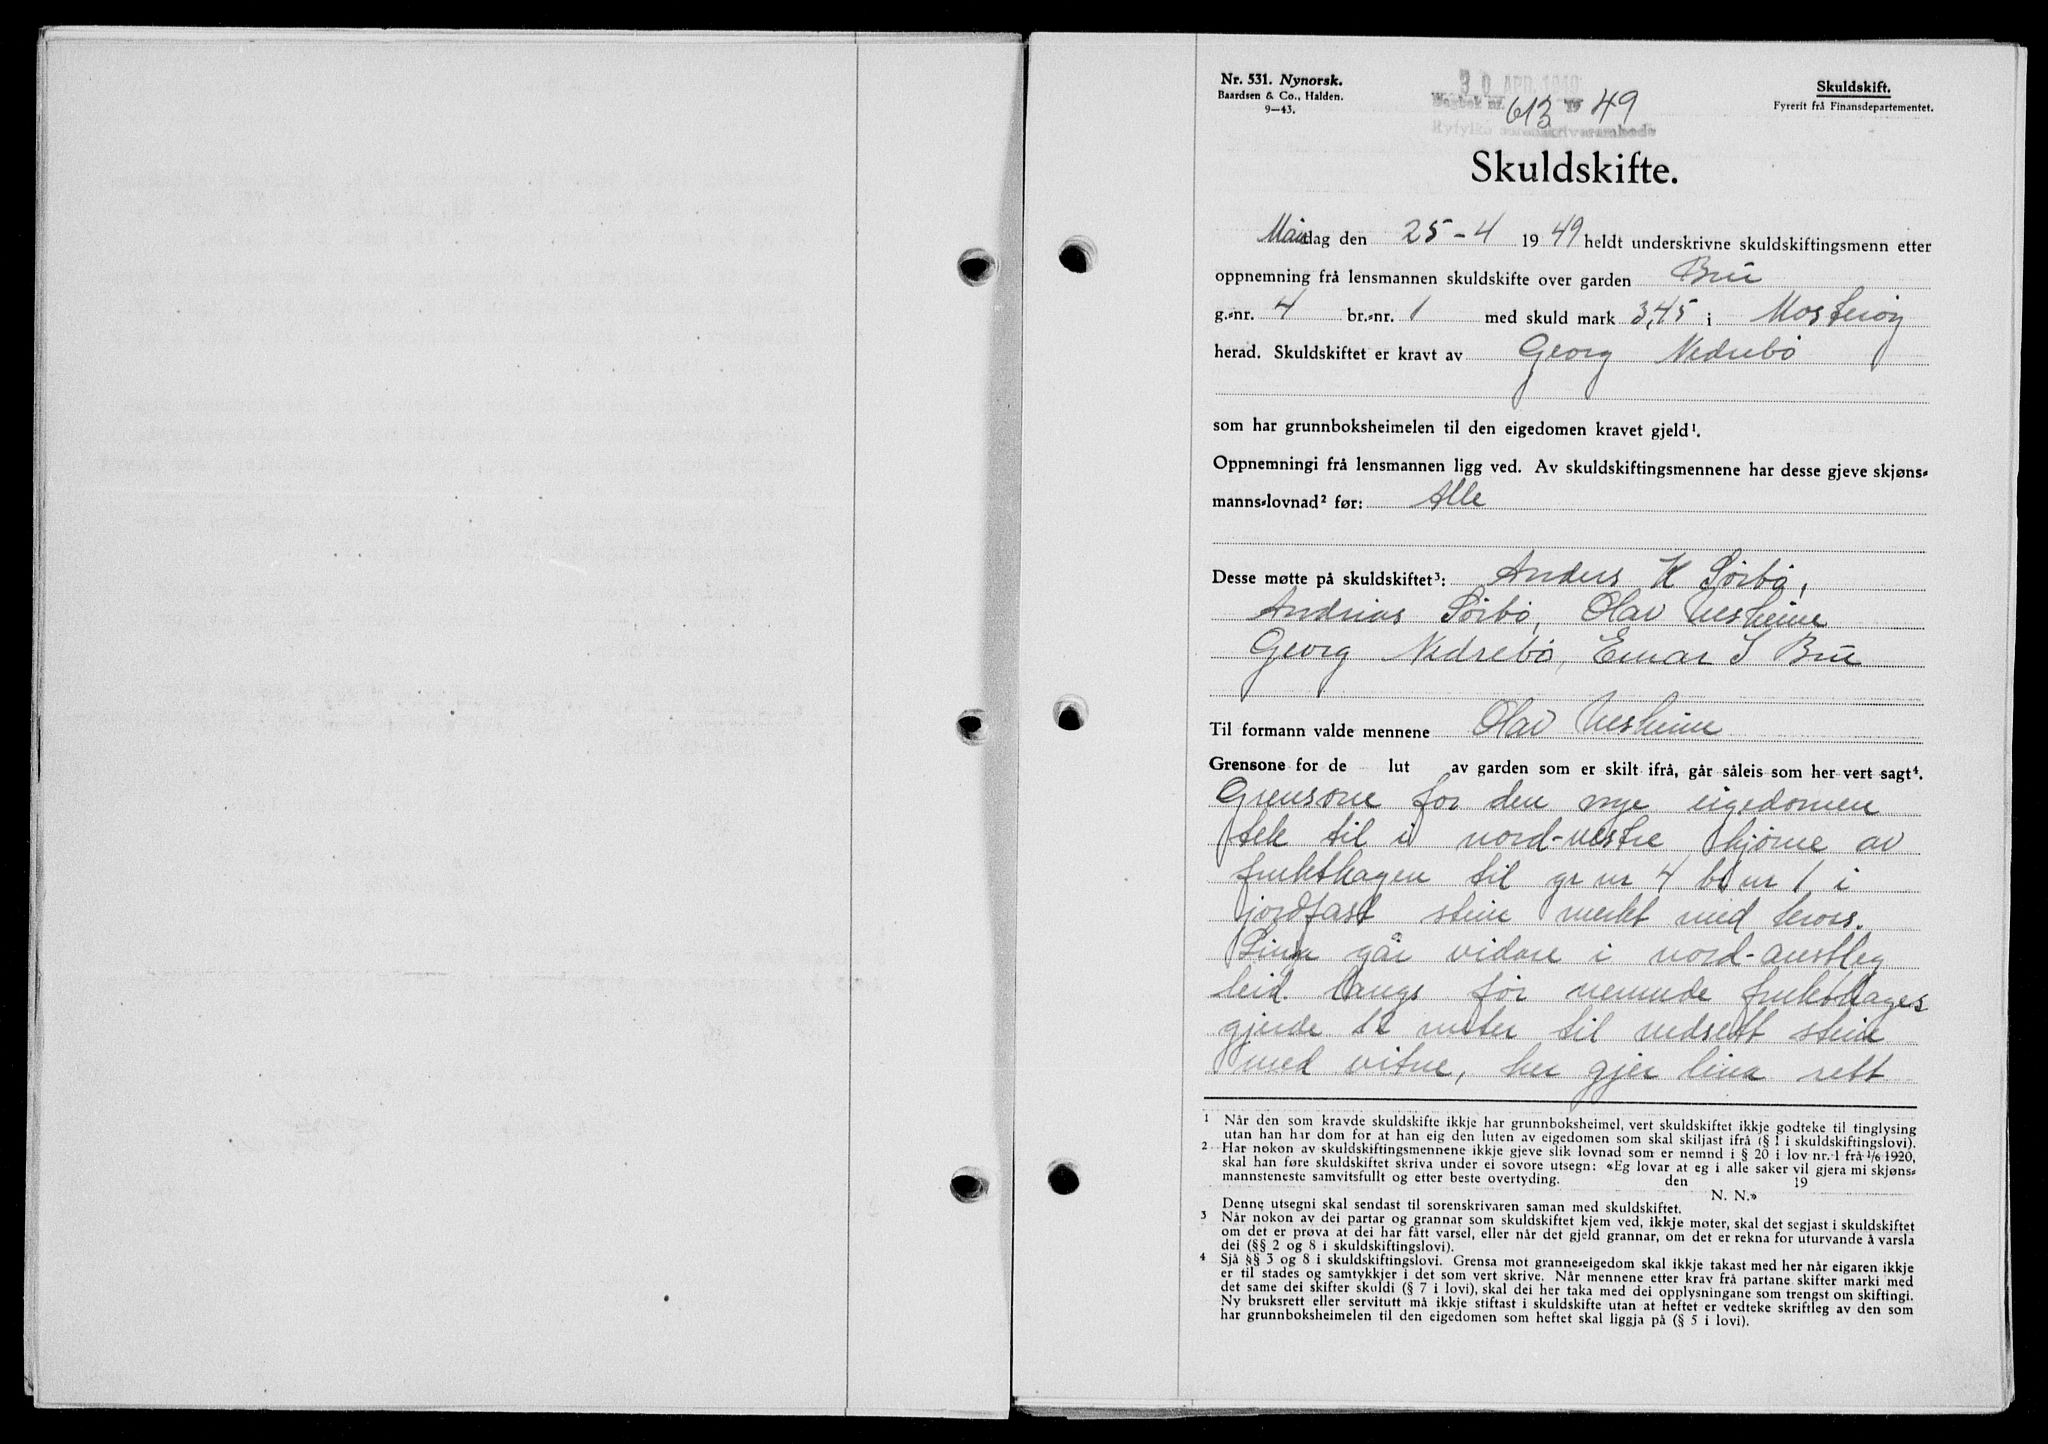 Nr. 531. Nynorsk.
Baardsen & Co., Halden.
9—43.
30 APR. 1949
Dagbok nr. 613 19 49
Ryfylke sorenskrivarembede
Skuldskift.
Fyrerit frå Finansdepartementet.
Skuldskifte.
Måndag den 25-4 1949 heldt underskrivne skuldskiftingsmenn etter
oppnemning frå lensmannen skuldskifte over garden Bru
g.-nr. 4 br.-nr. 1 med skuld mark 3,45 i Mosterøy
herad. Skuldskiftet er kravt av Georg Nedrebö
som har grunnboksheimelen til den eigedomen kravet gjeld¹.
Oppnemningi frå lensmannen ligg ved. Av skuldskiftingsmennene har desse gjeve skjøns-
manns-lovnad² før: Alle
Desse møtte på skuldskiftet³: Anders K Sörbö,
Andrias Sörbö, Olav Vestheim
Georg Nedrebö, Einar S Bru
Til formann valde mennene Olav Vestheim
Grensone for de lut av garden som er skilt ifrå, går såleis som her vert sagt⁴.
Grensone for den nye eigedomen
tek til i nord-vestre hjörne av
frukthagen til gr nr 4 br nr 1 i
jordfast stein merkt med kross.
Lina går vidare i nord-austleg
leid langs för nemnde frukthages
gjerde 12 meter til nedsett stein
med vitne, her gjer lina rett
¹ Når den som kravde skuldskifte ikkje har grunnboksheimel, vert skuldskiftet ikkje godteke til tinglysing
utan han har dom for at han eig den luten av eigedomen som skal skiljast ifrå (§ 1 i skuldskiftingslovi).
² Har nokon av skuldskiftingsmennene ikkje gjeve slik lovnad som er nemnd i § 20 i lov nr. 1 frå 1/6 1920,
skal han føre skuldskiftet skriva under ei sovore utsegn: «Eg lovar at eg i alle saker vil gjera mi skjøns-
mannsteneste samvitsfullt og etter beste overtyding. den 19
N. N.»
Denne utsegni skal sendast til sorenskrivaren saman med skuldskiftet.
³ Når nokon av dei partar og grannar som skuldskiftet kjem ved, ikkje møter, skal det segjast i skuldskiftet
om det er prøva at dei har fått varsel, eller når det gjeld grannar, om det er rekna for uturvande å varsla
dei (§§ 2 og 8 i skuldskiftingslovi).
⁴ Sjå §§ 3 og 8 i skuldskiftingslovi. Grensa mot granne-eigedom skal ikkje takast med her når eigaren ikkje
er til stades og samtykkjer i det som vert skrive. Når mennene etter krav frå partane skifter marki med
det same dei skifter skuldi (§ 7 i lovi), skal dei her taka med dei opplysningane som trengst om skiftingi.
Ny bruksrett eller servitutt må ikkje stiftast i skuldskifte utan at heftet er vedteke skriftleg av den som
har grunnboksheimelen til den eigedomen som heftet skal liggja på (§ 5 i lovi).